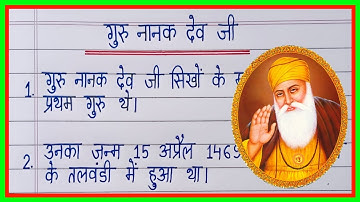 गुरु नानक देव जी
1. गुरु नानक देव जी सिखों के
प्रथम गुरु थे।
2. उनका जन्म 15 अप्रैल 1469
के तलवंडी में हुआ था।